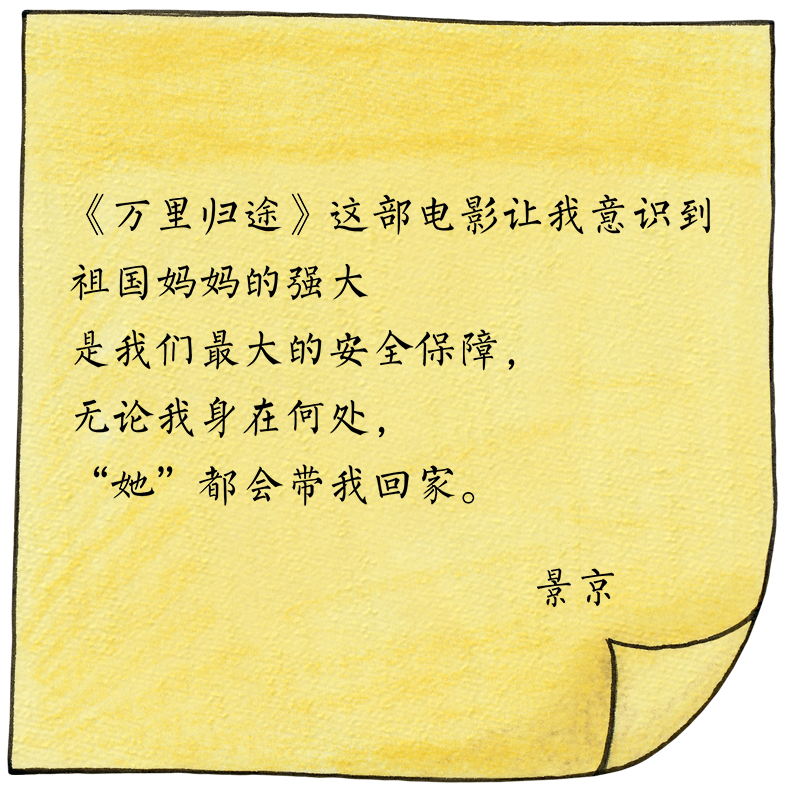 《万里归途》这部电影让我意识到
祖国妈妈的强大
是我们最大的安全保障，
无论我身在何处，
“她”都会带我回家。
景京